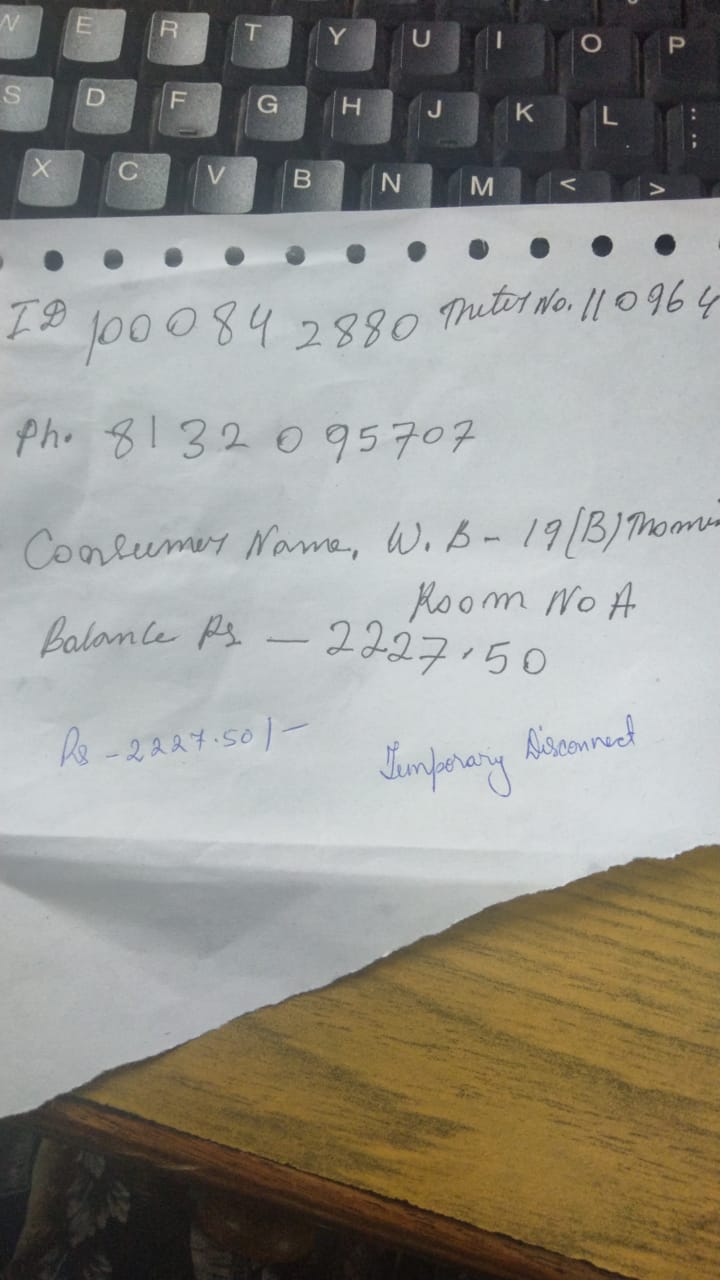 W E R T Y U I O P
S D F G H J K L : ;
X C V B N M < >
ID 1000842880 Meter No. 110964
Ph. 8132095707
Consumer Name, W.B - 19(B)
Room No A
Balance Rs — 2227.50
Rs - 2227.50/-
Temporary Disconnect